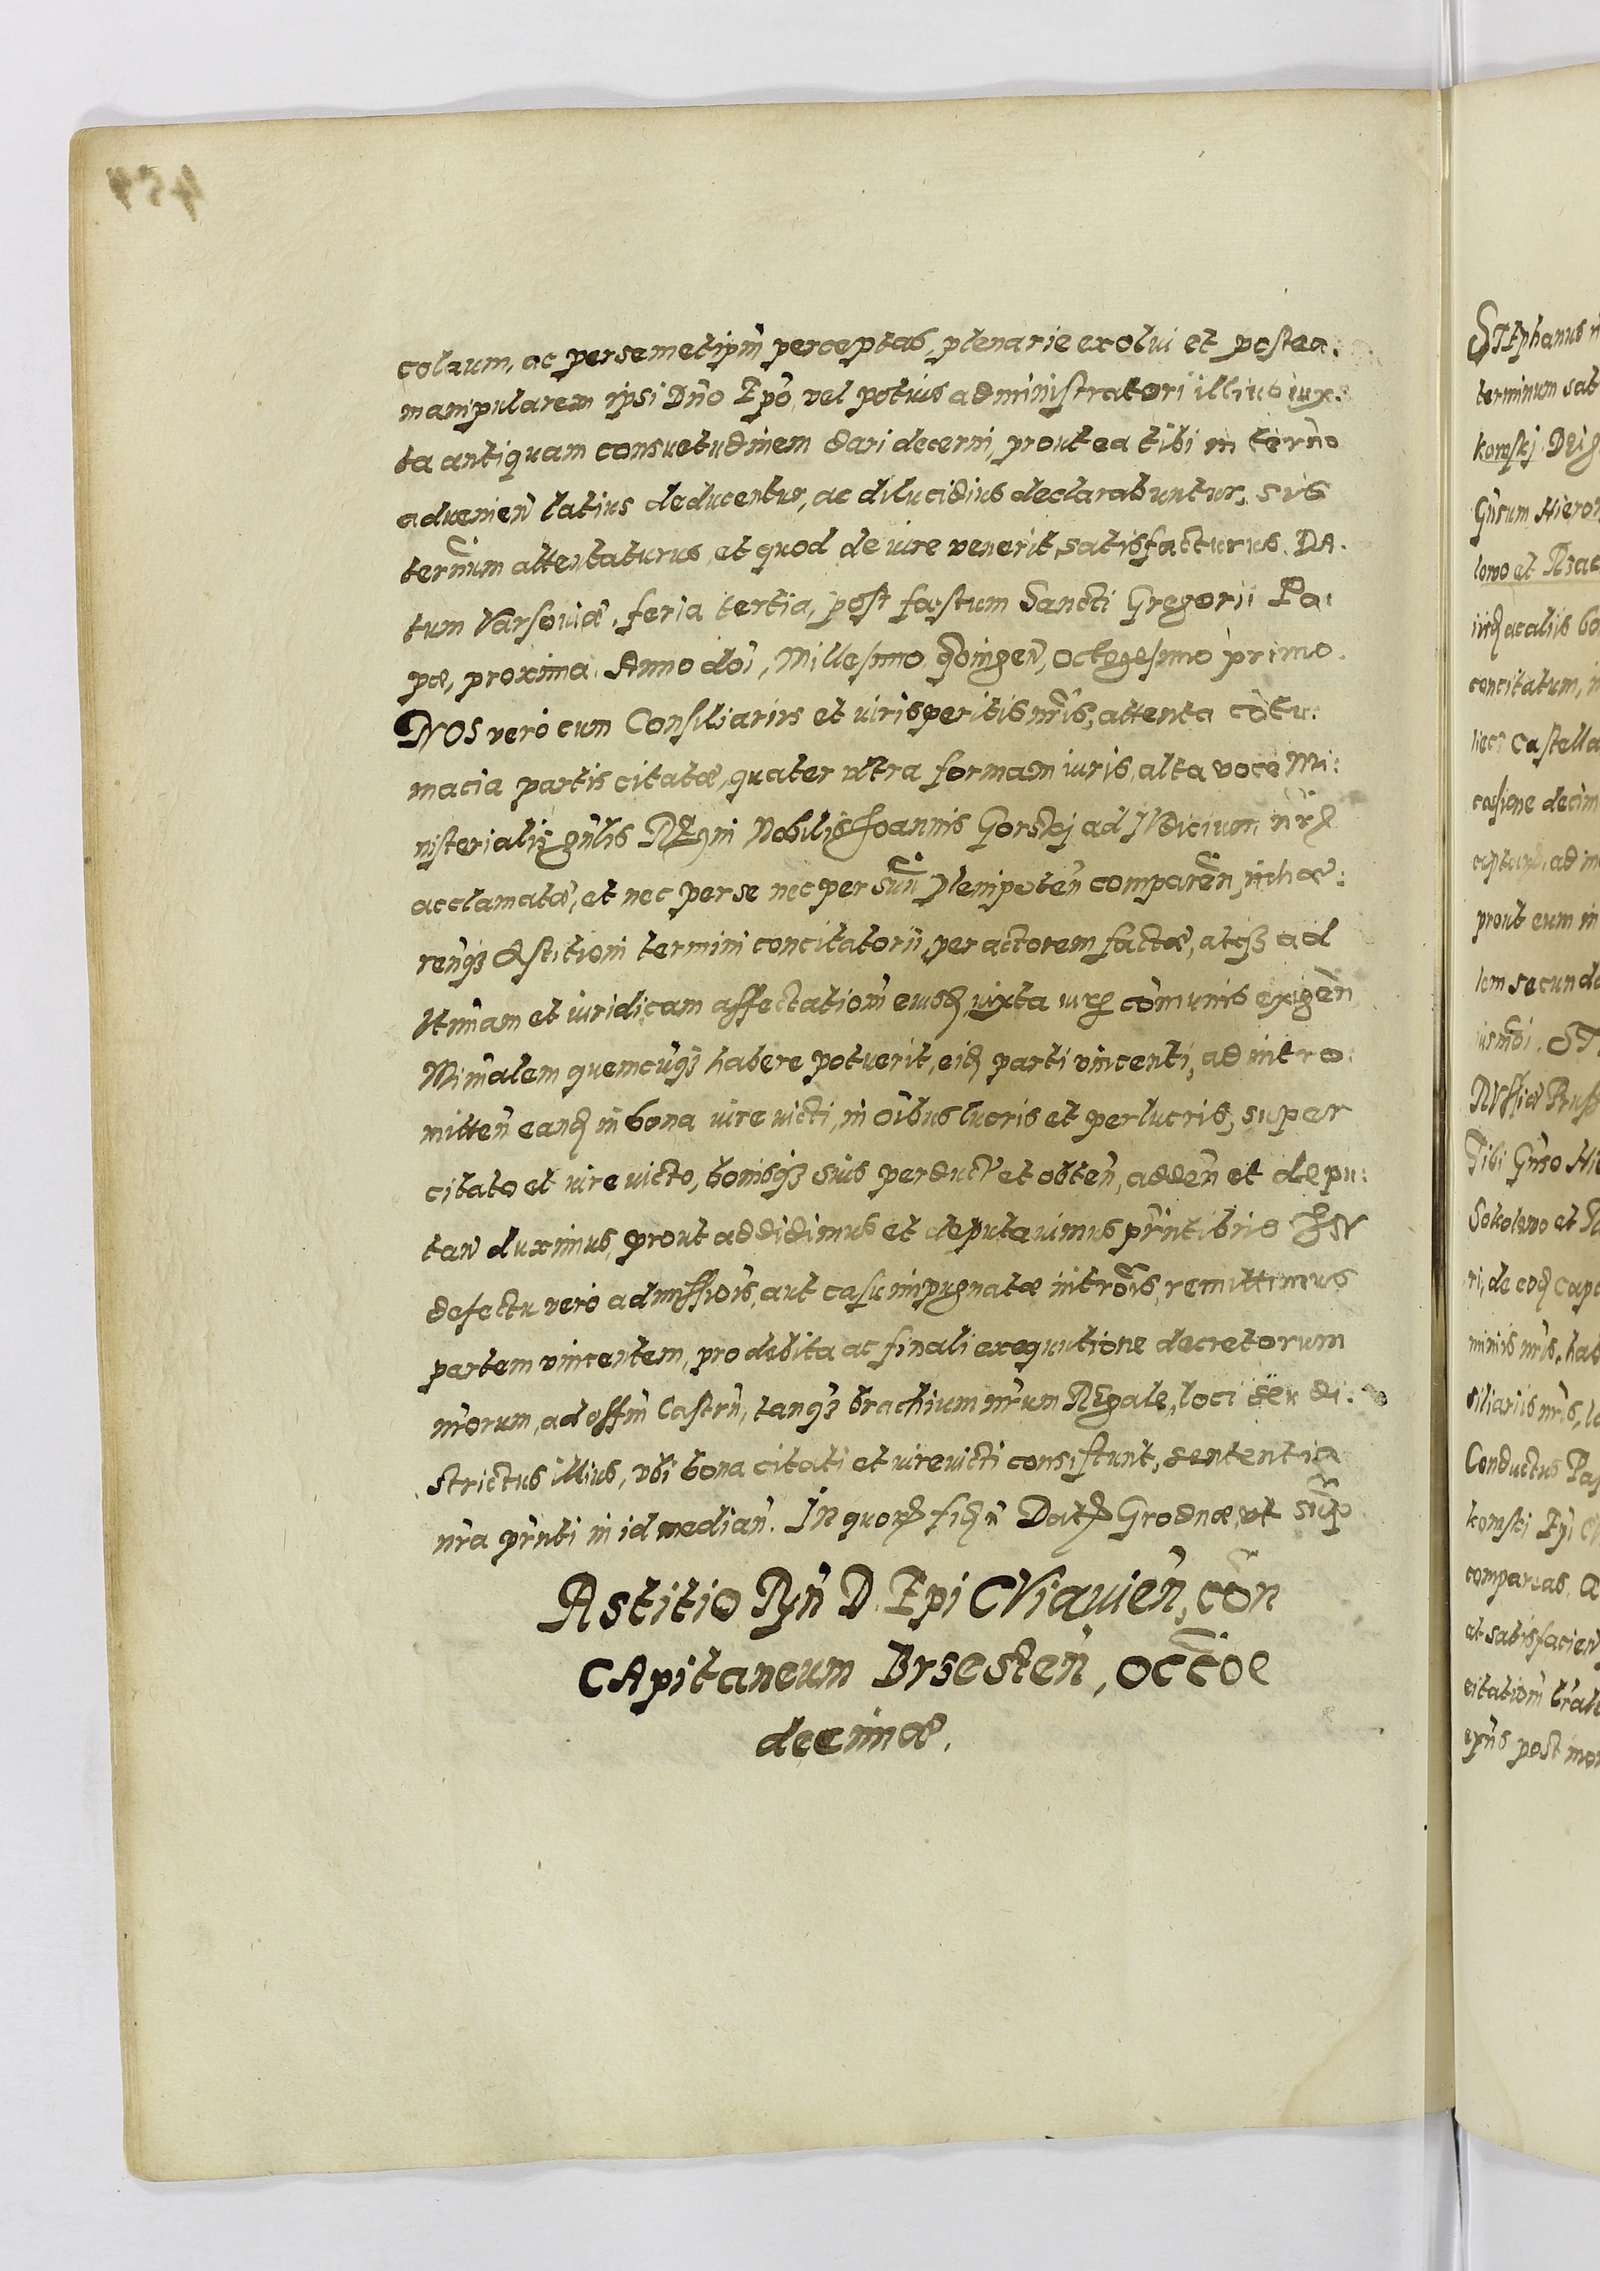 colaum, ac per semetipm̃ perceptas, plenarie exolui et postea.
manipularem ipsi Dño Epo, vel potius administratori illius iux:
ta antiquam consuetudinem dari decerni, prout ea tibi in terno
advenien̄ latius deducentur, ac dilucidius declarabuntur, sis
ternm̄ attentaturus, et quod de iure venerit, satisfacturus. DA.
tum Varsouiæ, feria tertia, post fæstum Sancti Gregorii Pa:
pæ, proxima. Anno doi, Millesimo qoingen̄, octogesimo primo.
NOS vero cum Consiliariis et iurisperitis nr̄is, attenta cotu:
macia partis citatæ, quater vltra formam iuris, alta voce Mi:
nisterialis gnlis REgni Nobilis Joannis Gorskj ad IVdicium nr̄ꝝ
acclamatæ, et nec per se nec per sũm plenipoten̄ comparen̄, inhæ:
renqz Astitioni termini concitatorii, per actorem factæ, atqz ad
ltimam et iuridicam affectationem̄ eiusd iuxta iurꝝ comunis exigen̄
Minalem quemcuqz habere potuerit, eid parti vincenti, ad intro:
mitten̄ eand in bona iure victi, in oibus lucris et perlucris, super
citato et iure victo, bonisqz suis perduct' et obten̄, adden̄ et depu:
tan̄ duximus, prout addidimus et deputauimus prn̄tibus In
defectu vero admissiois, aut casu impugnatæ introis, remittimus
partem vincentem, pro debita ac finali exequutione decretorum
nr̄orum, ad offm̄ Castrn̄, tanqz brachium nr̄um REgale, loci seu di:
strictus illius, vbi bona citati et iure victi consistunt, sententia
nr̄a prn̄ti in id median̄. In quorꝝ fidē Datꝝ Grodnæ, vt sup̄
Astitio Ryn̄ D. Epi CViauien̄, con̄
CApitaneum Brsesten̄, occoe
decimæ.

STEphanus
terminum sat
komskj. DEi g
Gn̄sum Hieron
lowo et
concitatum, 
Castella
casione decim
prout eum in
lem secunda
Tibi Gn̄so Hie
Sokolowo et
ri, de eod Capi
minis nr̄is, hab
siliariis nr̄is,
Conductus Pas
komski Epi
compareas.
et satisfacien̄
citationm̄
post mor